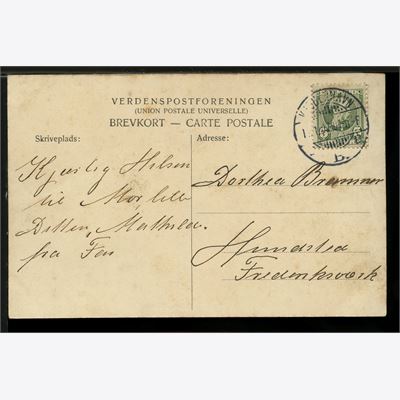 VERDENSPOSTFORENINGEN
(UNION POSTALE UNIVERSELLE)
BREVKORT — CARTE POSTALE
Skriveplads:
Adresse:
Kjærlig Hilsen
til Mor, lille
Ditten, Mathilde.
fra Far
Dorthea Brammer
Hundested
Frederiksværk
B.